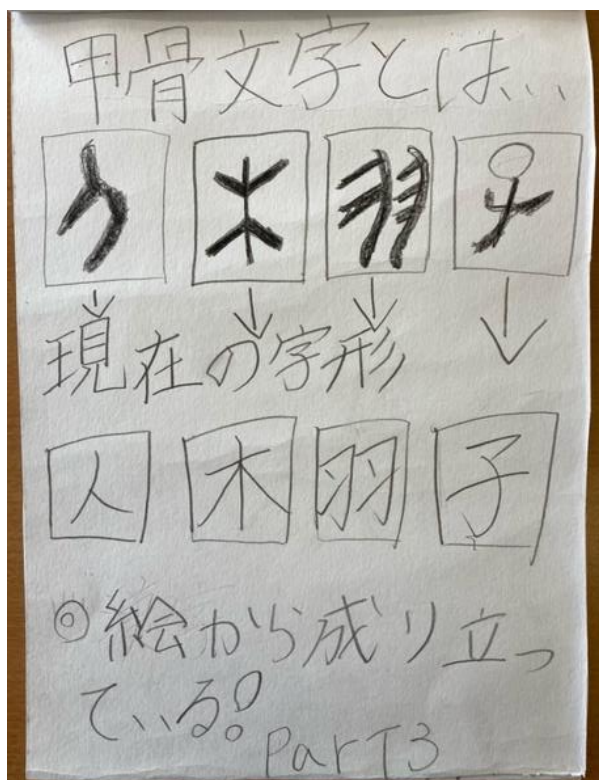 甲骨文字とは、、
現在の字形
人 木 羽 子
◎絵から成り立っ
ている!
ParT3